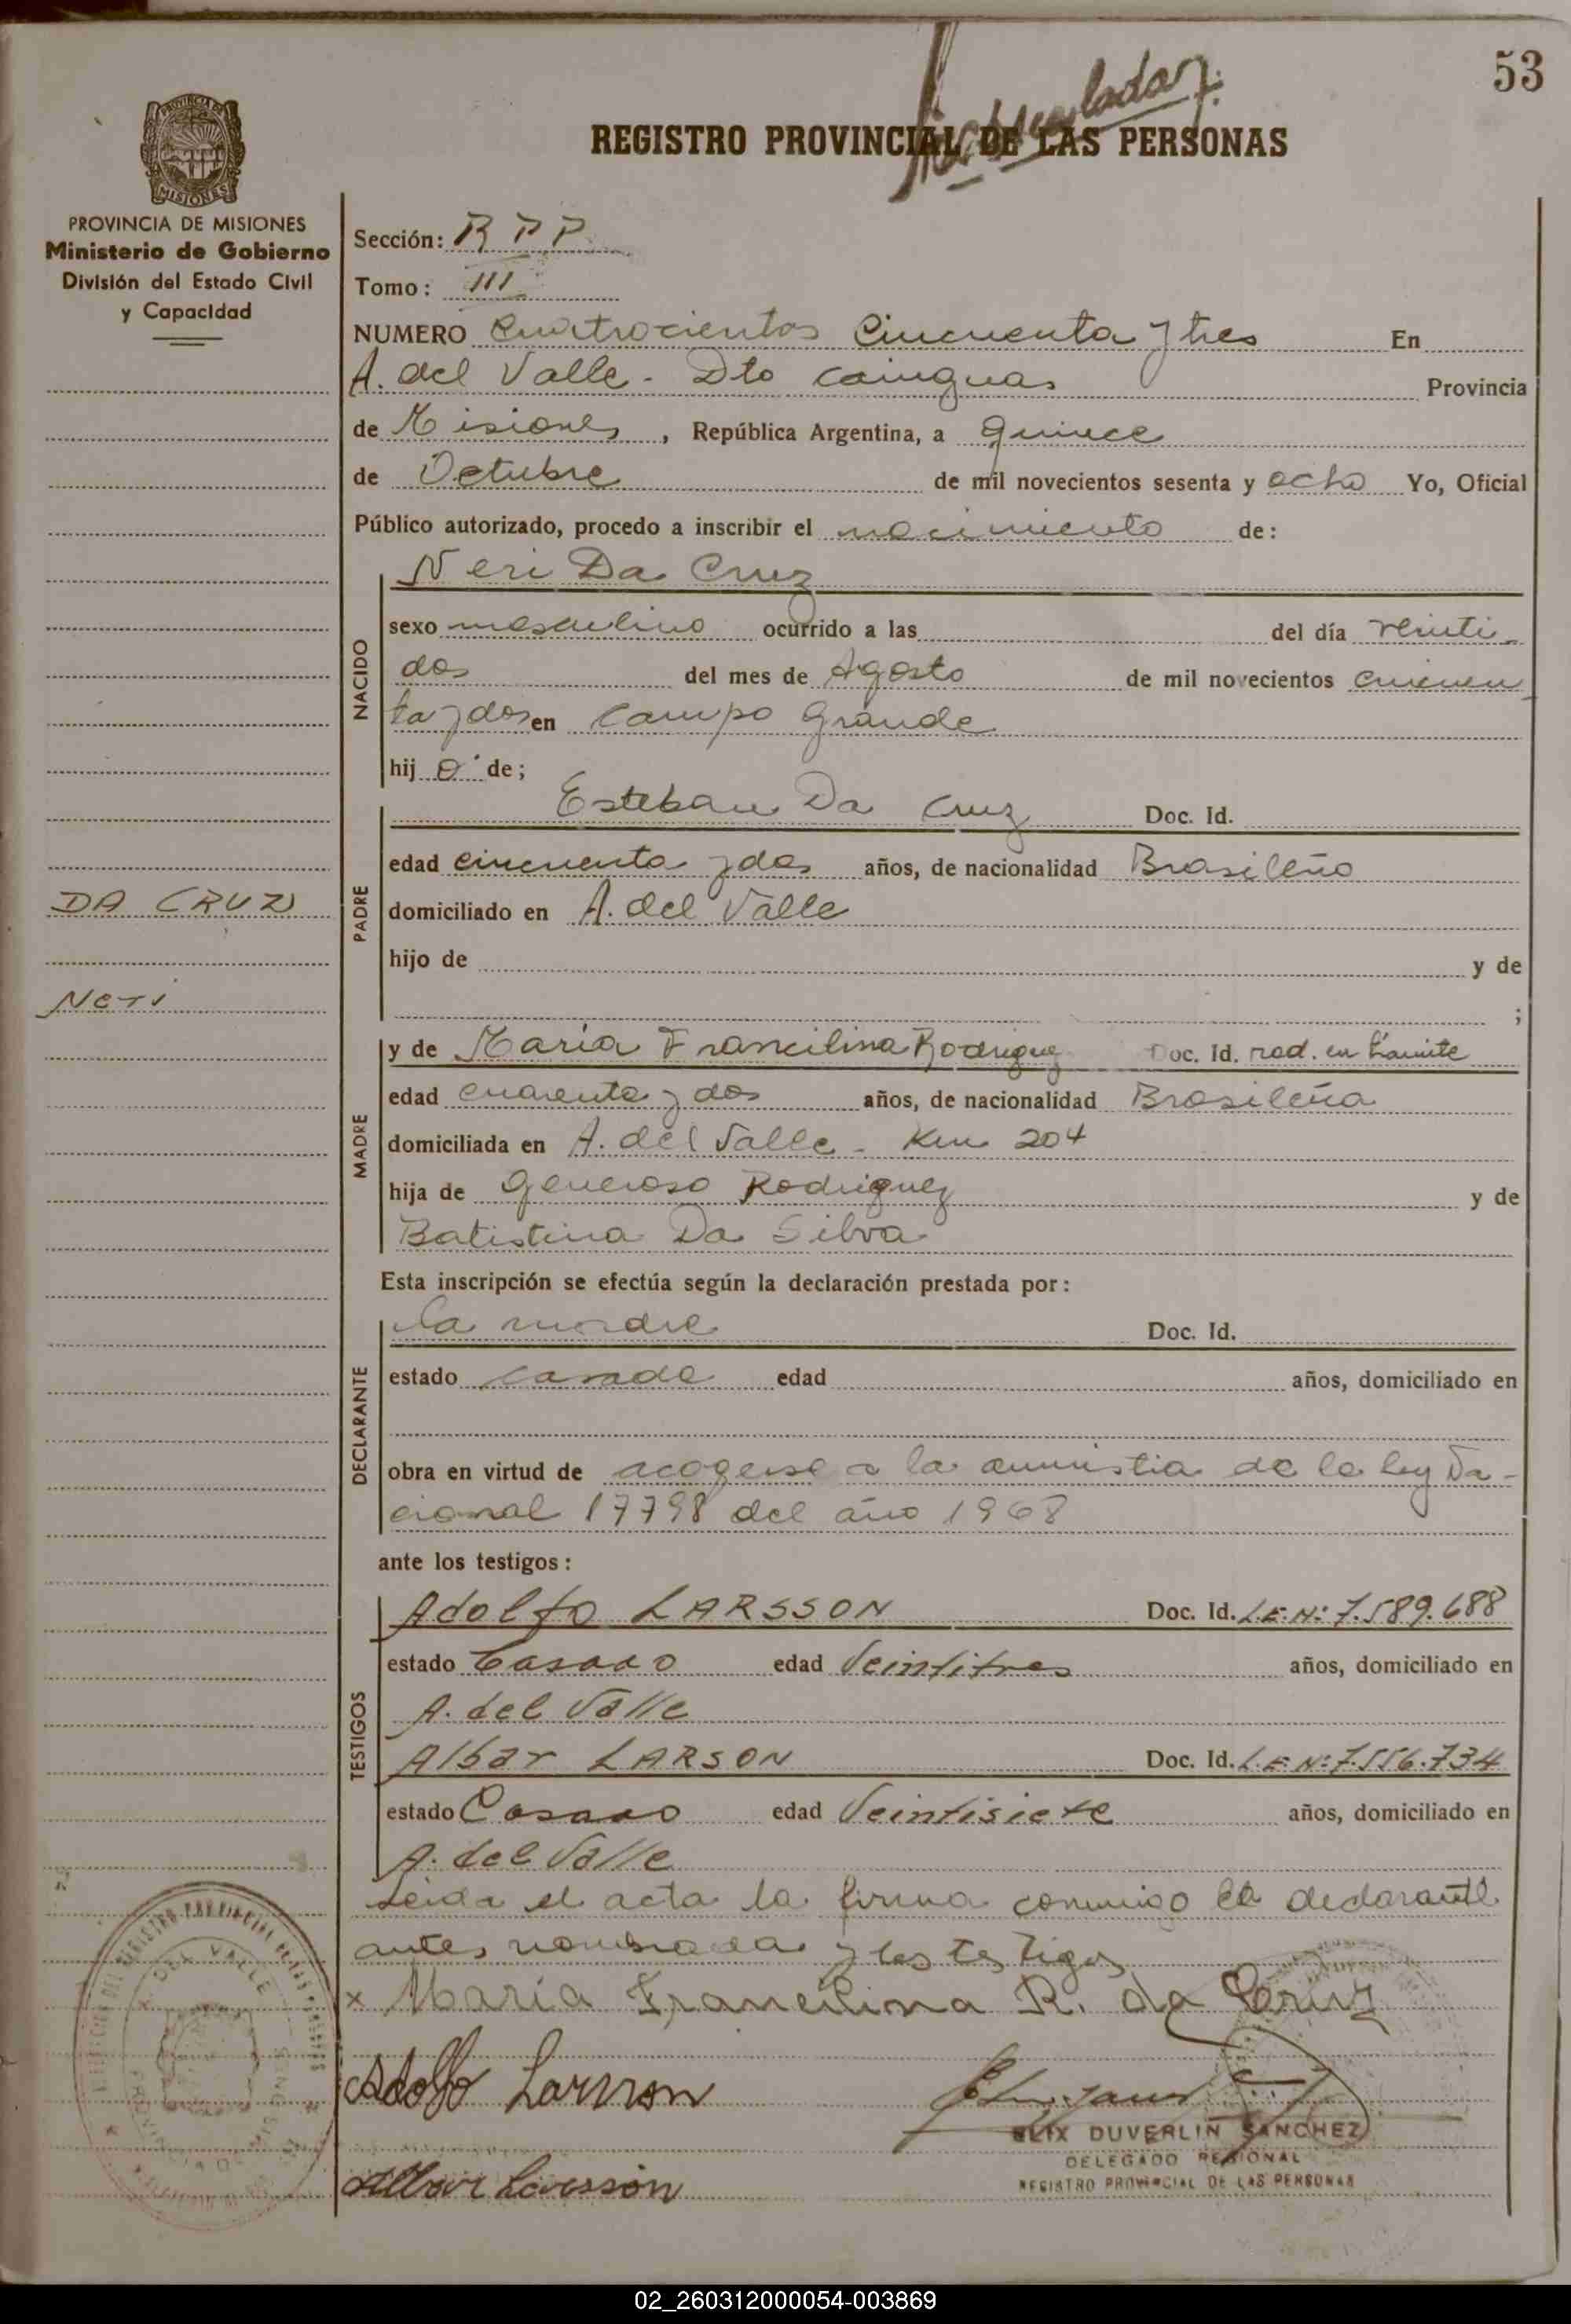 53
REGISTRO PROVINCIAL DE LAS PERSONAS
PROVINCIA DE MISIONES
Ministerio de Gobierno
División del Estado Civil
y Capacidad
Sección: R P P
Tomo: III
NUMERO Cuatrocientos Cincuenta y tres En
A. del Valle - Dto Cainguas Provincia
de Misiones, República Argentina, a quince
de Octubre de mil novecientos sesenta y ocho Yo, Oficial
Público autorizado, procedo a inscribir el nacimiento de:
Neri Da Cruz
NACIDO
sexo masculino ocurrido a las del día veinti-
dos del mes de Agosto de mil novecientos cincuen-
ta y dos en Campo Grande
hijo de;
Esteban Da Cruz Doc. Id.
PADRE
edad cincuenta y dos años, de nacionalidad Brasileño
DA CRUZ
domiciliado en A. del Valle
hijo de y de
Neri
;
y de María Francilina Rodriguez Doc. Id. rad. en trámite
MADRE
edad cuarenta y dos años, de nacionalidad Brasileña
domiciliada en A. del Valle - Km 204
hija de Generoso Rodriguez y de
Batistina Da Silva
Esta inscripción se efectúa según la declaración prestada por:
La madre Doc. Id.
DECLARANTE
estado casada edad años, domiciliado en
obra en virtud de acogerse a la amnistia de la ley Na-
cional 17798 del año 1968
ante los testigos:
TESTIGOS
Adolfo LARSSON Doc. Id. L.E.Nº 7.589.688
estado Casado edad Veintitres años, domiciliado en
A. del Valle
Albar LARSON Doc. Id. L.E Nº 7.556.734
estado Casado edad Veintisiete años, domiciliado en
A. del Valle
Leida el acta la firma conmigo la declarante
antes nombrada y los testigos
x Maria Francilina R. da Cruz
Adolfo Larsson
ELIX DUVERLIN SANCHEZ
DELEGADO REGIONAL
REGISTRO PROVINCIAL DE LAS PERSONAS
Albar Larsson
02_260312000054-003869